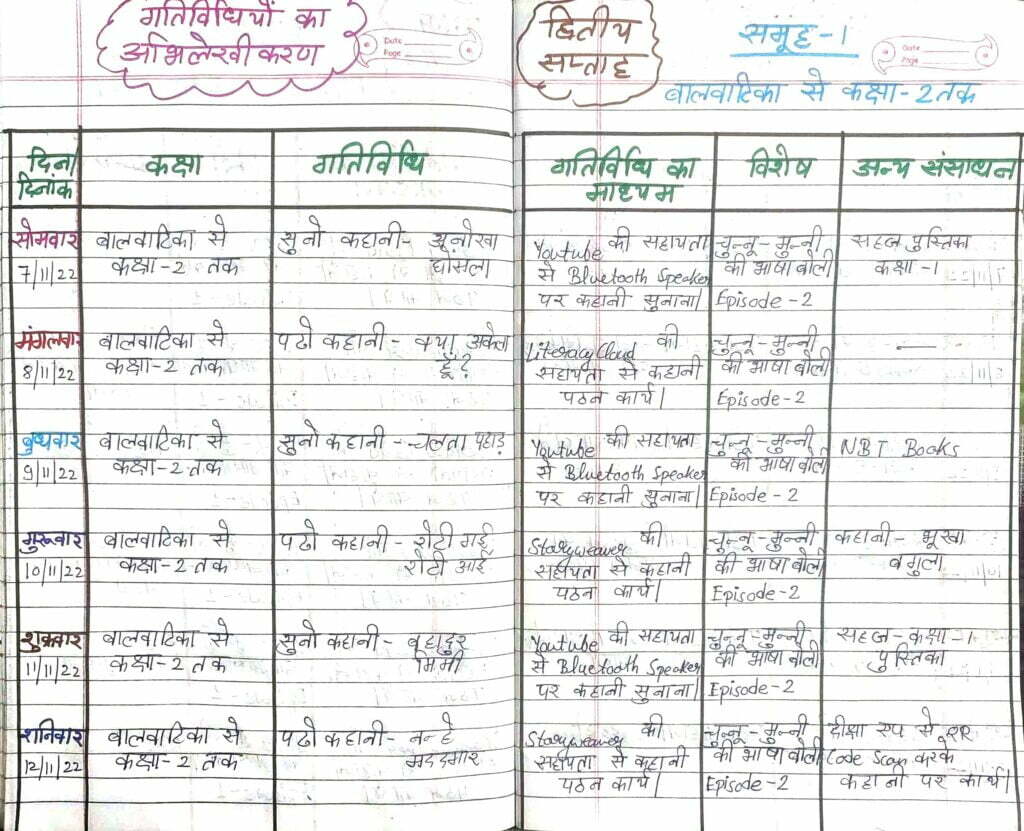 गतिविधियों का
अभिलेखीकरण
Date
Page
द्वितीय
सप्ताह
समूह-1
Date
Page
बालवाटिका से कक्षा-2 तक
दिन/ कक्षा गतिविधि गतिविधि का विशेष अन्य संसाधन
दिनांक माध्यम
सोमवार बालवाटिका से सुनो कहानी- अनोखा Youtube की सहायता चुन्नू-मुन्नी सहज पुस्तिका
7/11/22 कक्षा-2 तक घोंसला से Bluetooth Speaker की भाषा बोली कक्षा-1
पर कहानी सुनाना। Episode-2
मंगलवार बालवाटिका से पढो कहानी- क्या अकेला LiteracyCloud की चुन्नू-मुन्नी —
8/11/22 कक्षा-2 तक हूँ? सहायता से कहानी की भाषा बोली
पठन कार्य। Episode-2
बुधवार बालवाटिका से सुनो कहानी- चलता पहाड़ Youtube की सहायता चुन्नू-मुन्नी NBT Books
9/11/22 कक्षा-2 तक से Bluetooth Speaker की भाषा बोली
पर कहानी सुनाना। Episode-2
गुरूवार बालवाटिका से पढो कहानी- रोटी गई Storyweaver की चुन्नू-मुन्नी कहानी- भूखा
10/11/22 कक्षा-2 तक रोटी आई सहायता से कहानी की भाषा बोली बगुला
पठन कार्य। Episode-2
शुक्रवार बालवाटिका से सुनो कहानी- बहादुर Youtube की सहायता चुन्नू-मुन्नी सहज-कक्षा-1
11/11/22 कक्षा-2 तक मिमी से Bluetooth Speaker की भाषा बोली पुस्तिका
पर कहानी सुनाना। Episode-2
शनिवार बालवाटिका से पढो कहानी- नन्हे Storyweaver की चुन्नू-मुन्नी दीक्षा एप से QR
12/11/22 कक्षा-2 तक मददगार सहायता से कहानी की भाषा बोली Code Scan करके
पठन कार्य। Episode-2 कहानी पर कार्य।